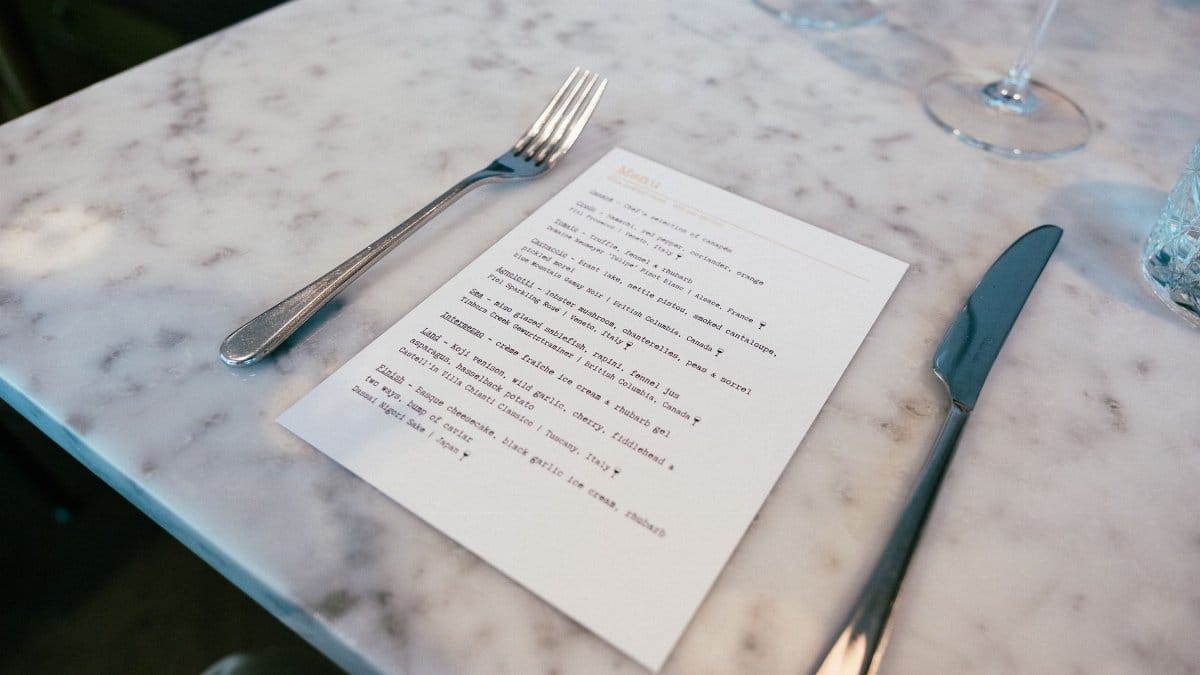 Menu
Chef's selection of canapés
Crudo - hamachi, red pepper, coriander, orange
Fiol Prosecco | Veneto, Italy
Tomato - truffle, fennel & rhubarb
Domaine Neumeyer 'Tulipe' Pinot Blanc | Alsace, France
Carpaccio - Brant lake, nettle pistou, smoked cantaloupe,
pickled morel
Blue Mountain Gamay Noir | British Columbia, Canada
Agnolotti - lobster mushroom, chanterelles, peas & sorrel
Fiol Sparkling Rosé | Veneto, Italy
Sea - miso glazed sablefish, rapini, fennel jus
Tinhorn Creek Gewurztraminer | British Columbia, Canada
Intermezzo - crème fraîche ice cream & rhubarb gel
Land - Koji venison, wild garlic, cherry, fiddlehead &
asparagus, hasselback potato
Castell'in Villa Chianti Classico | Tuscany, Italy
Finish - Basque cheesecake, black garlic ice cream, rhubarb
two ways, bump of caviar
Dassai Nigori Sake | Japan